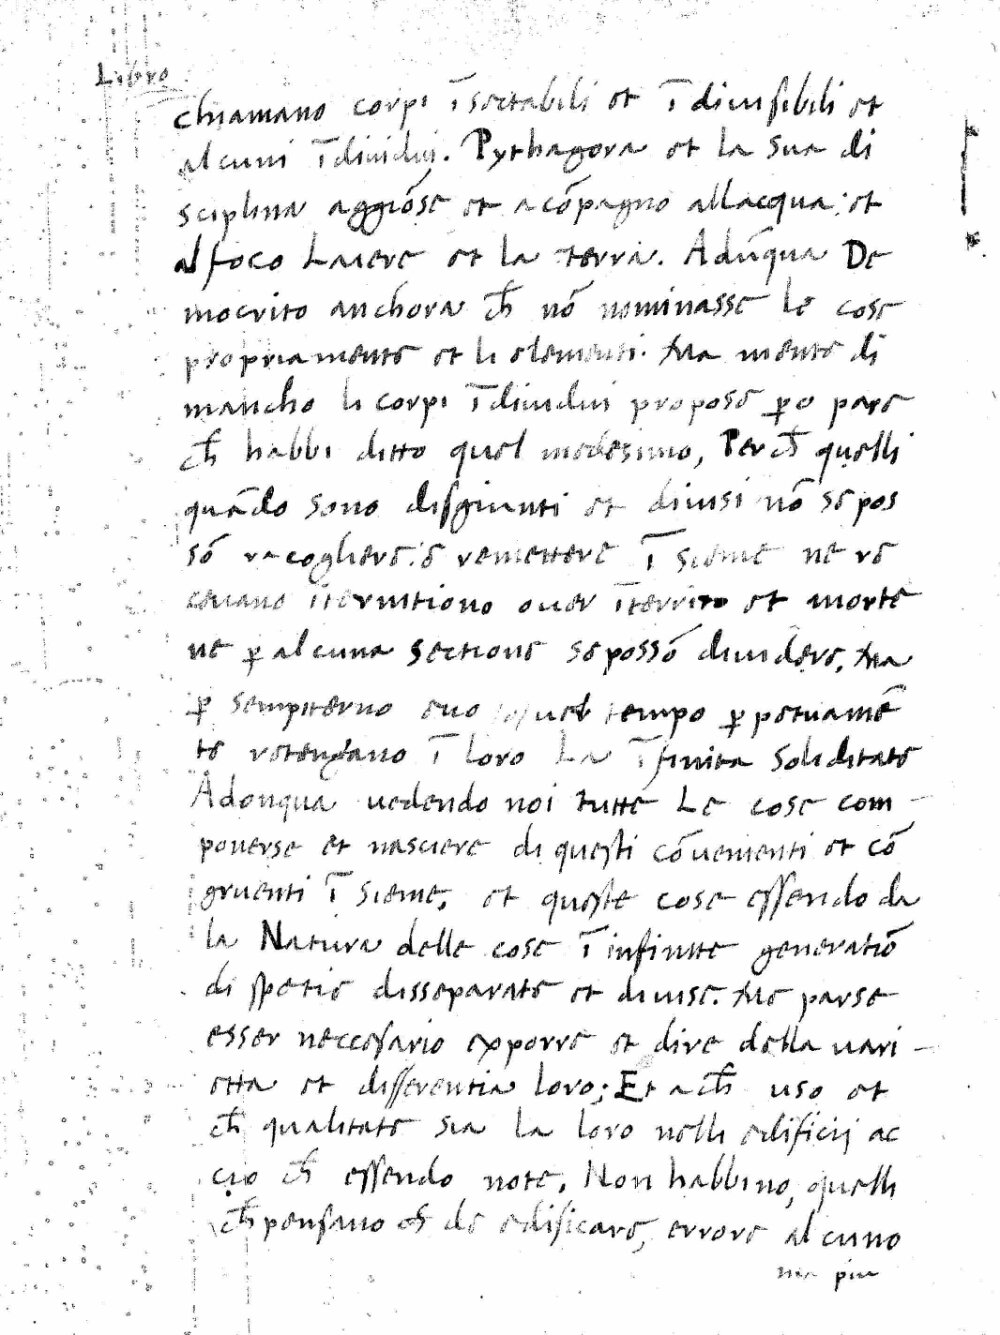 Libro
chiamano corpi ī sectabili et ī diuisibili et
alcuni īdiuidui. Pythagora et la sua di
sciplina aggiōse et acōpagno allacqua: et
al foco Laiere et la terra. Adūqua De
mocrito anchora ch̄ nō nominasse le cose
propriamente et li elementi. Ma mente di
mancho li corpi īdiuidui propose p̱o pare
ch̄ habbi ditto quel medesimo, Perch̄ quelli
quādo sono disgiunti et diuisi nō se pos
sō racogliere: o remettere ī sieme ne re
ceuano iteruitiono ouer īterrito et morte
ne p̱ alcuna sectione se possō diuidere, Ma
p̱ sempiterno euo tempo p̱petuamē
te retengano ī loro La īfinita soliditate
Adonqua uedendo noi tutte Le cose com
ponerse et nasciere di questi cōuenienti et cō
gruenti ī sieme, et queste cose essendo da
la Natura delle cose ī infinite generatiō
di spetie disseparate et diuise. Me parse
esser neccesario exporre et dire della uari
etta et differentia loro; Et a ch̄ uso et
ch̄ qualitate sia la loro nelli edificij ac
cio ch̄ essendo note, Non habbino, quelli
ch̄ pensano de edificare, errore alcuno
ma piu